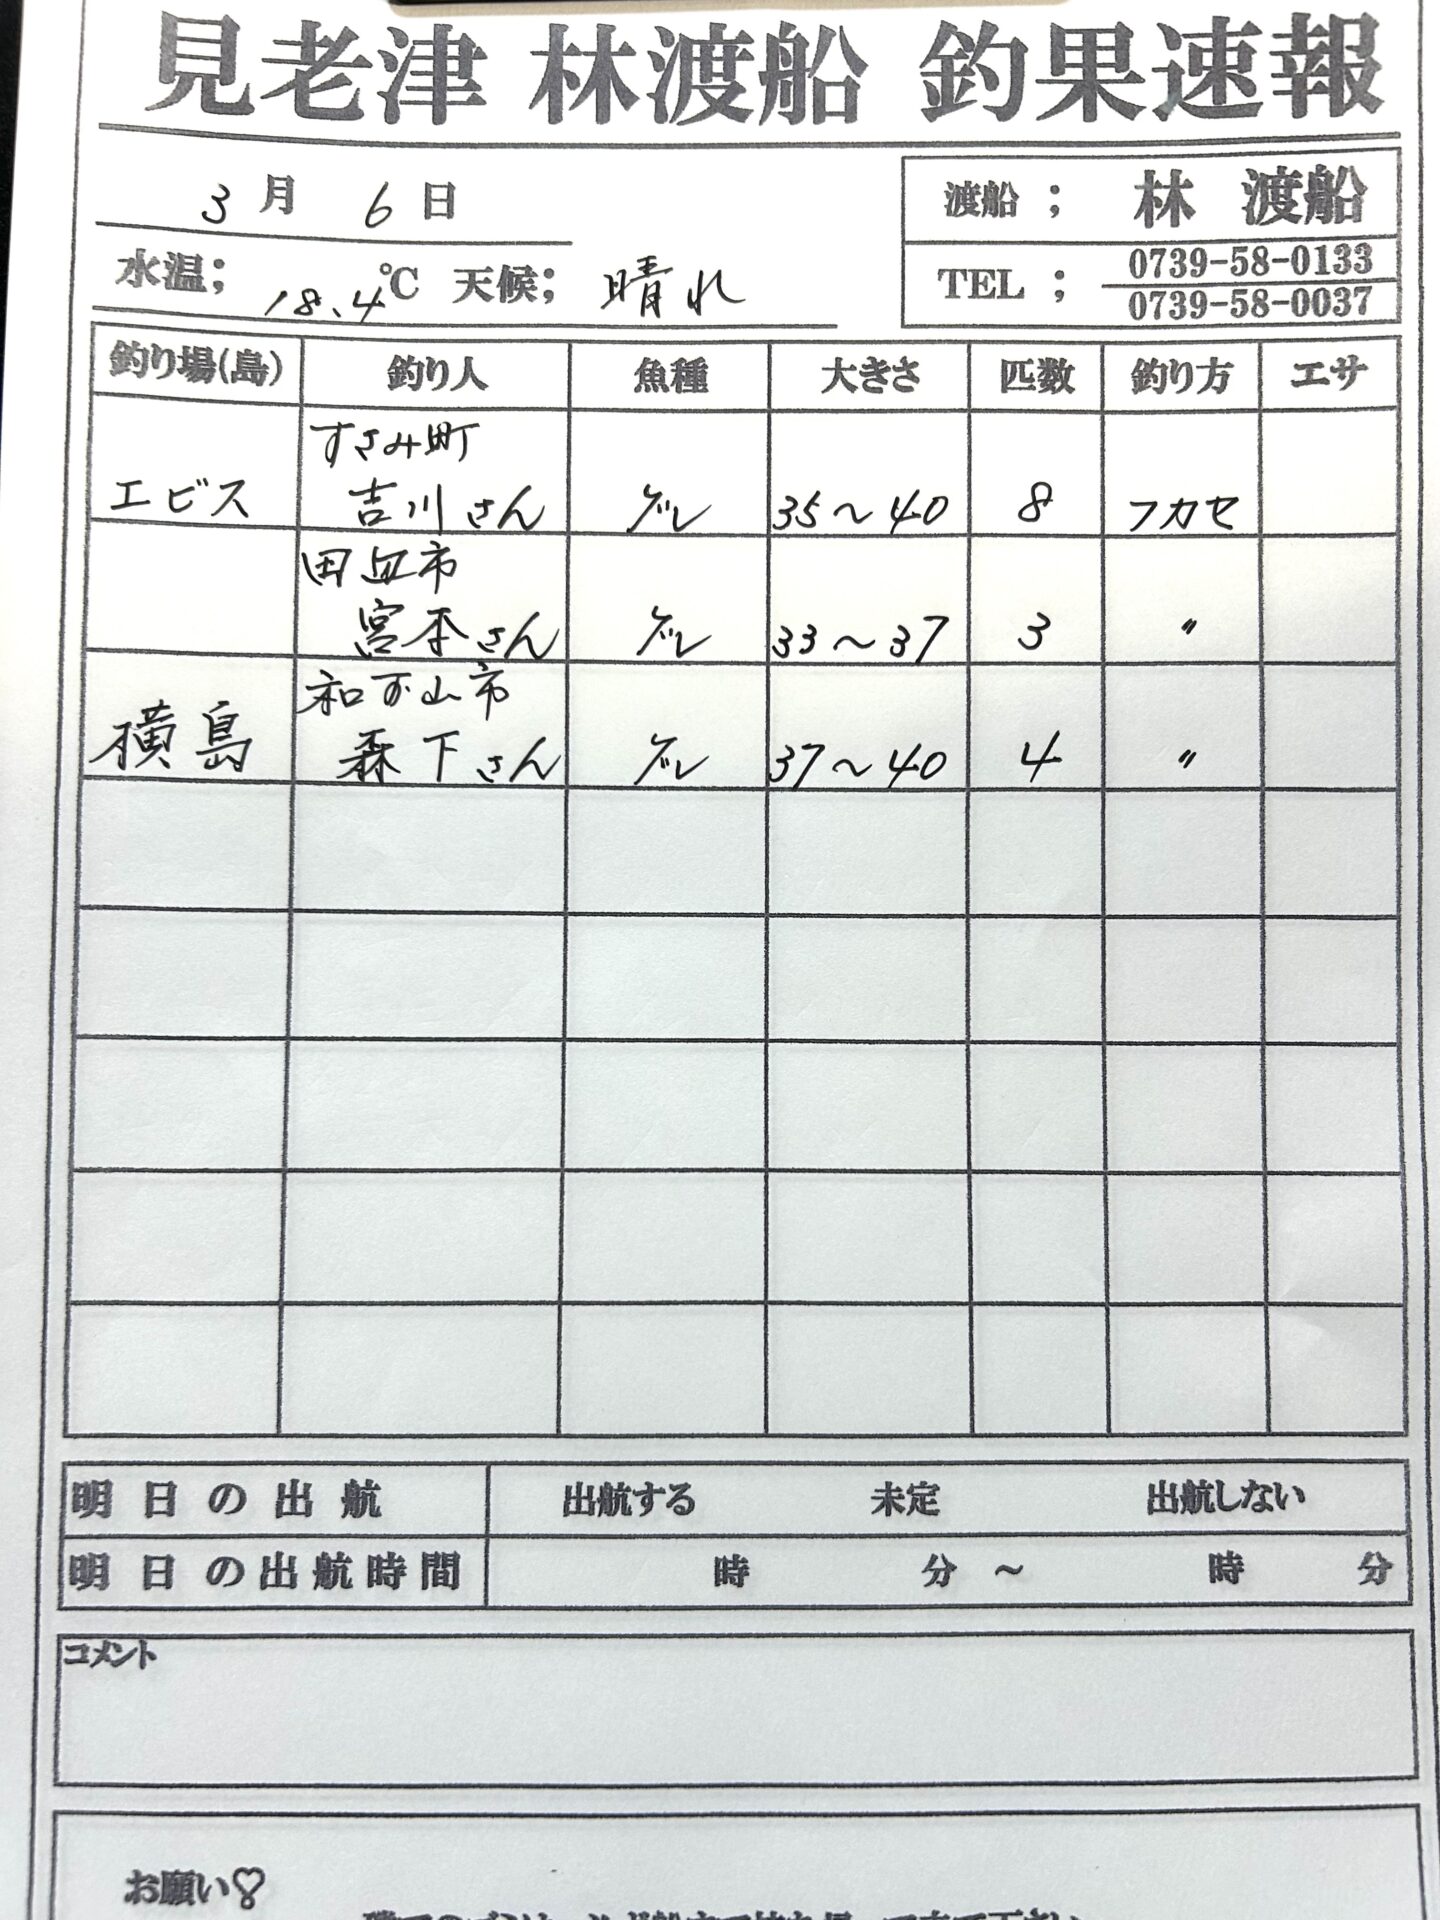 見老津 林渡船 釣果速報
3月 6日
渡船 ; 林 渡船
水温; 18.4℃ 天候; 晴れ
TEL ; 0739-58-0133
0739-58-0037
釣り場(島) 釣り人 魚種 大きさ 匹数 釣り方 エサ
すさみ町
エビス 吉川さん グレ 35〜40 8 フカセ
田辺市
宮本さん グレ 33〜37 3 〃
和歌山市
横島 森下さん グレ 37〜40 4 〃
明日の出航 出航する 未定 出航しない
明日の出航時間 時 分 〜 時 分
コメント
お願い